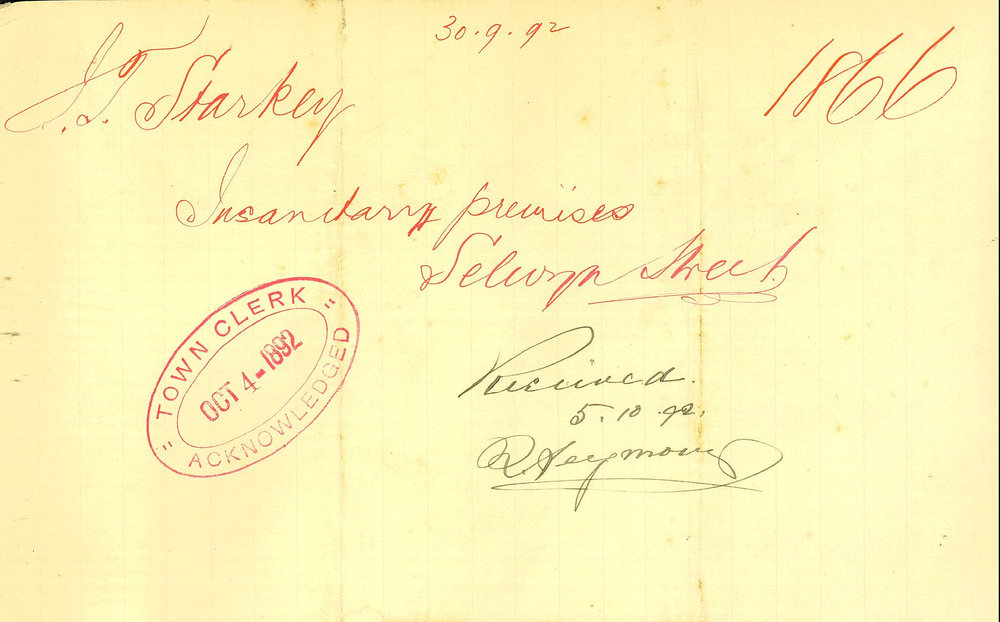 30.9.92
J.T. Starkey
1866
Insanitary premises
Selwyn Street.
"TOWN CLERK"
OCT 4-1892
ACKNOWLEDGED
Received.
5.10.92.
R. Seymour